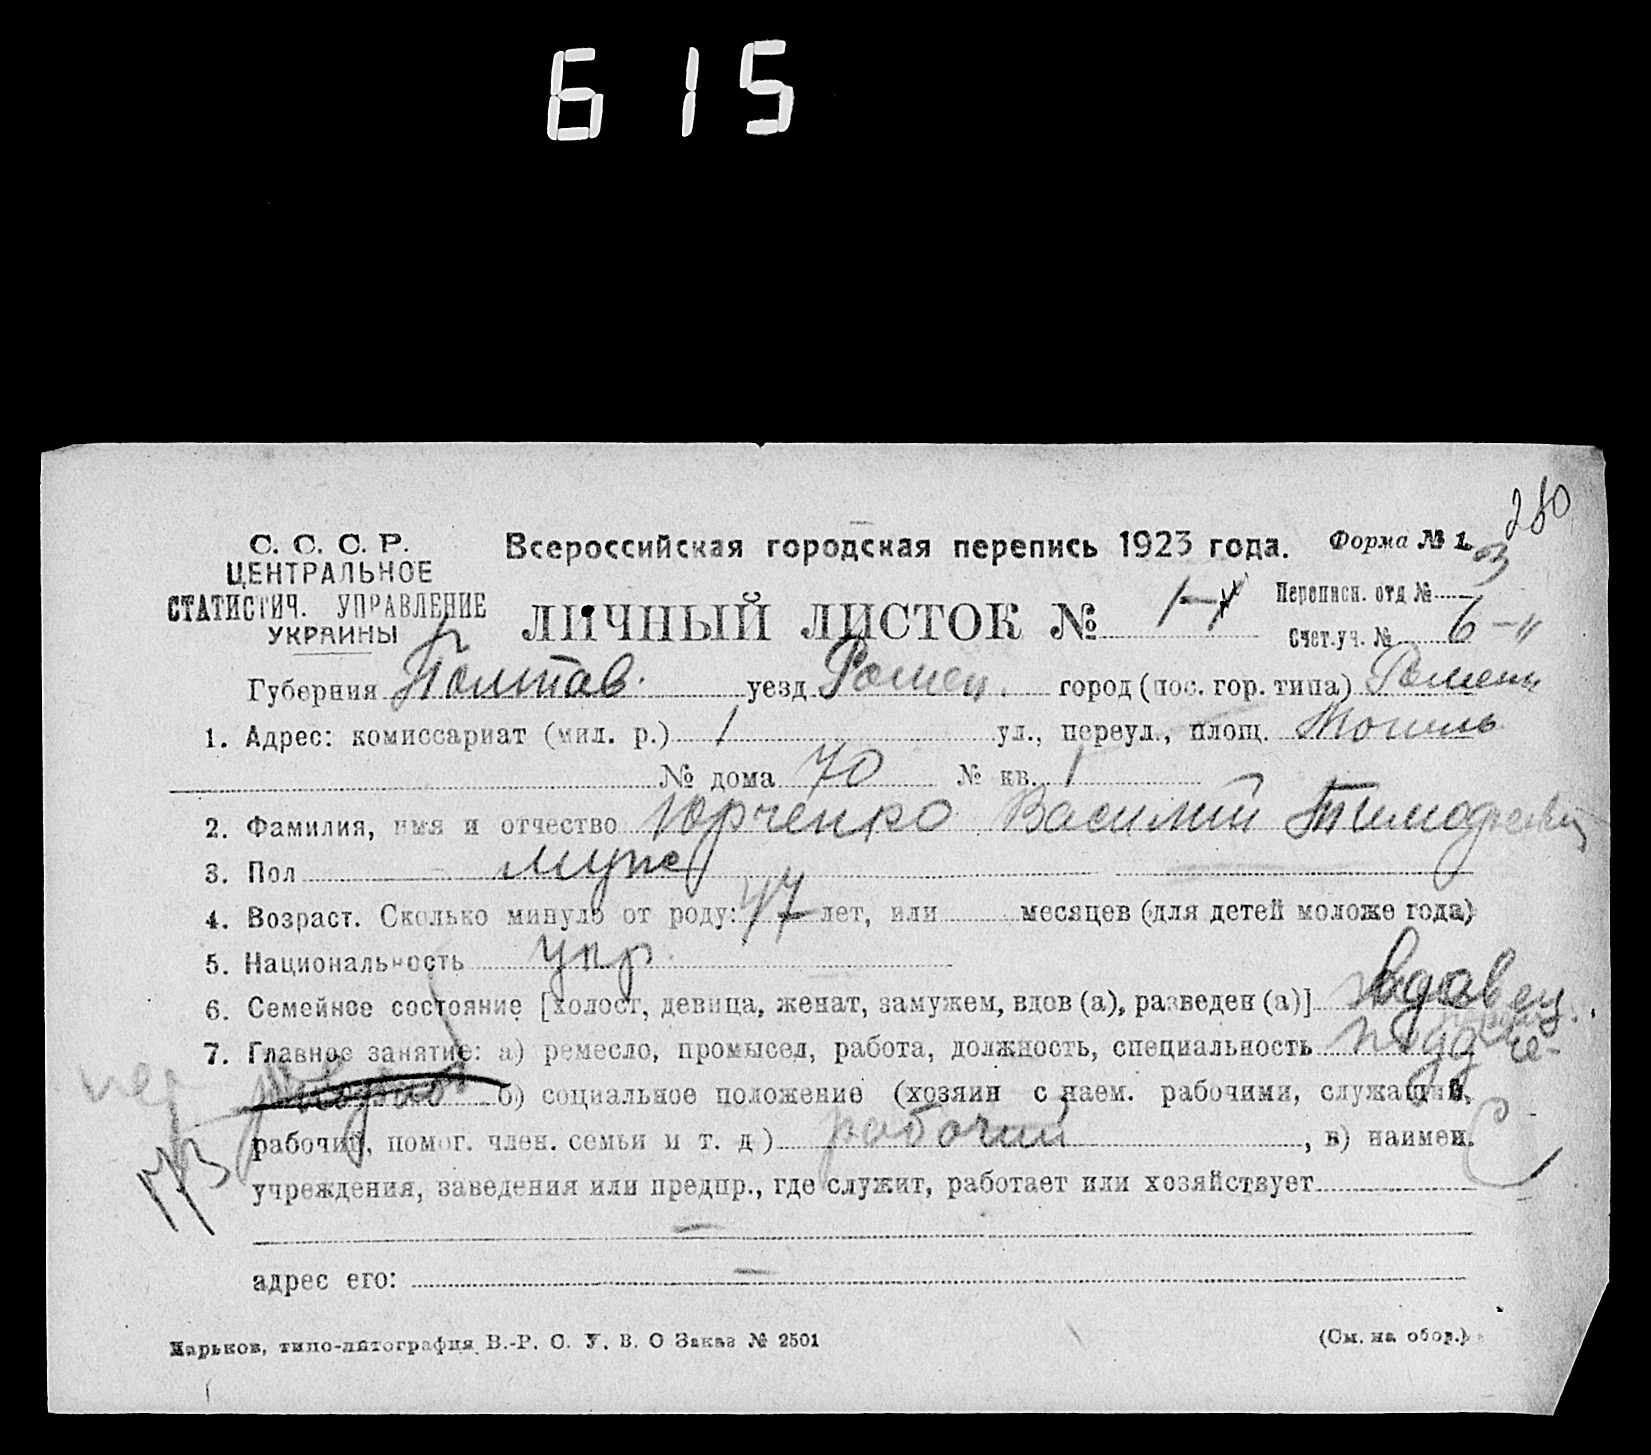 615
280
С. С. С. Р.
ЦЕНТРАЛЬНОЕ
СТАТИСТИЧ. УПРАВЛЕНИЕ
УКРАИНЫ
Всероссийская городская перепись 1923 года. Форма № 1.
ЛИЧНЫЙ ЛИСТОК № 1-1
Переписн. отд № 3
Счет.уч. № 6 - "
Губерния Полтав. уезд Ромен. город (пос. гор. типа) Ромени
1. Адрес: комиссариат (мил. р.) 1 ул., переул., площ.
№ дома 70 № кв. 1
2. Фамилия, имя и отчество Юрченко Василий Тимофеевич
3. Пол муж
4. Возраст. Сколько минуло от роду: 47 лет, или месяцев (для детей моложе года)
5. Национальность укр.
6. Семейное состояние [холост, девица, женат, замужем, вдов (а), разведен (а)] вдовец
7. Главное занятие: а) ремесло, промысел, работа, должность, специальность
б) социальное положение (хозяин с наем. рабочими, служащий,
рабочий, помог. член. семьи и т. д) рабочий, в) наимен.
учреждения, заведения или предпр., где служит, работает или хозяйствует
адрес его:
Харьков, типо-литография В.-Р. С. У. В. О Заказ № 2501
(См. на обор.)